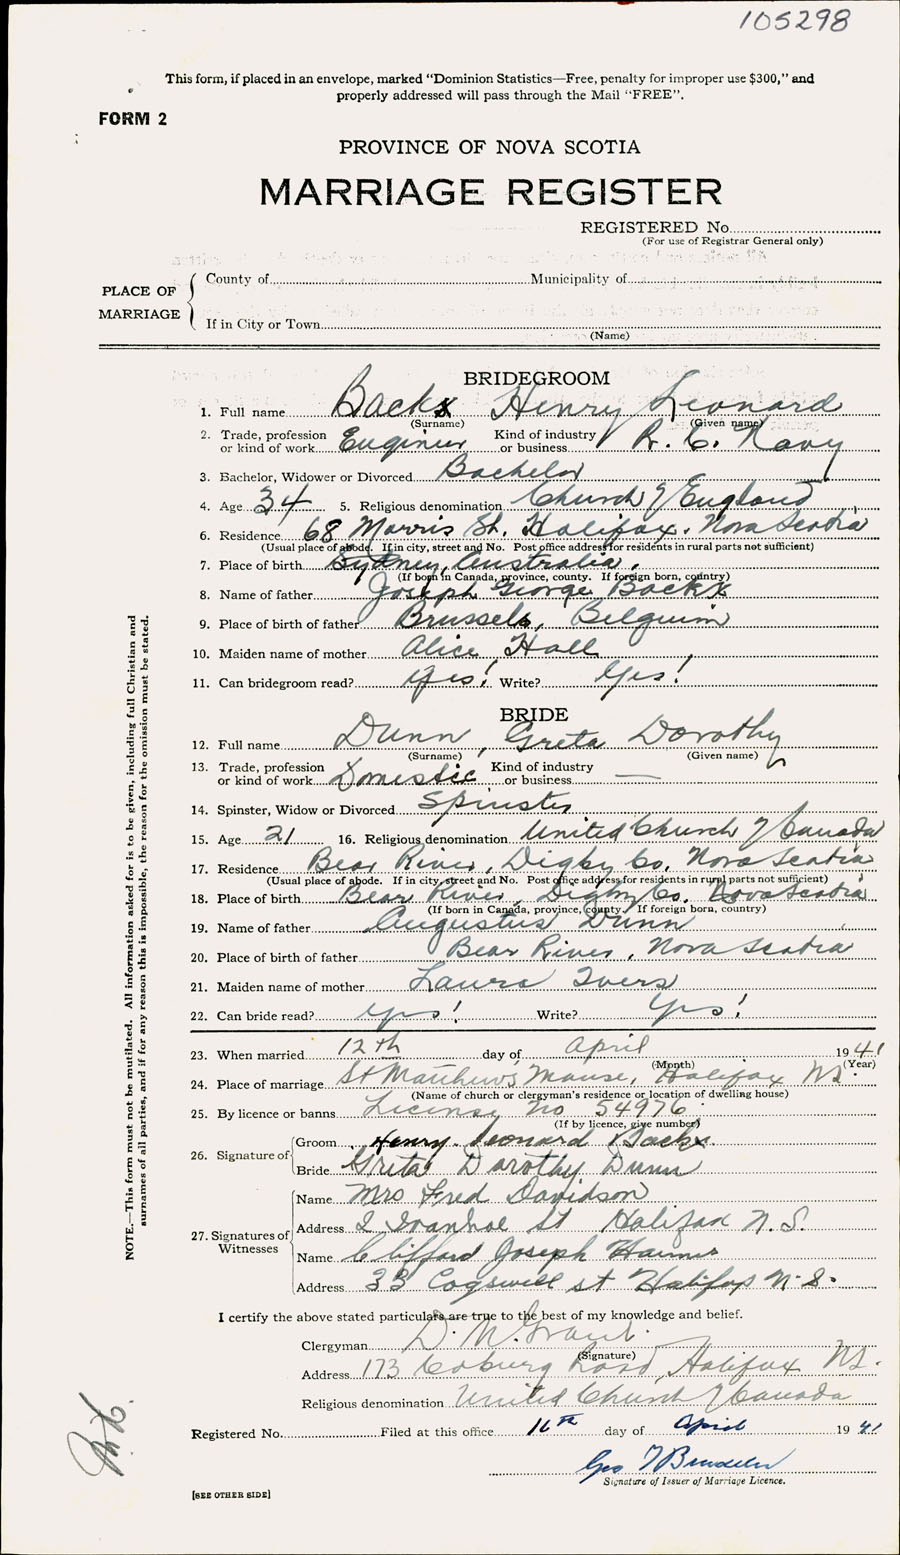 105298
This form, if placed in an envelope, marked "Dominion Statistics—Free, penalty for improper use $300," and
properly addressed will pass through the Mail "FREE".
FORM 2
PROVINCE OF NOVA SCOTIA
MARRIAGE REGISTER
REGISTERED No.
(For use of Registrar General only)
PLACE OF MARRIAGE
County of Municipality of
If in City or Town
(Name)
BRIDEGROOM
1. Full name Backx Henry Leonard
(Surname) (Given name)
2. Trade, profession or kind of work Engineer Kind of industry or business R. C. Navy
3. Bachelor, Widower or Divorced Bachelor
4. Age 34 5. Religious denomination Church of England
6. Residence 68 Morris St. Halifax. Nova Scotia
(Usual place of abode. If in city, street and No. Post office address for residents in rural parts not sufficient)
7. Place of birth Sydney, Australia.
(If born in Canada, province, county. If foreign born, country)
8. Name of father Joseph George Backx
9. Place of birth of father Brussels, Belguim
10. Maiden name of mother Alice Hall
11. Can bridegroom read? Yes! Write? Yes!
BRIDE
12. Full name Dunn, Greta Dorothy
(Surname) (Given name)
13. Trade, profession or kind of work Domestic Kind of industry or business —
14. Spinster, Widow or Divorced Spinster
15. Age 21 16. Religious denomination United Church of Canada
17. Residence Bear River, Digby Co, Nova Scotia
(Usual place of abode. If in city, street and No. Post office address for residents in rural parts not sufficient)
18. Place of birth Bear River, Digby Co. Nova Scotia
(If born in Canada, province, county. If foreign born, country)
19. Name of father Augustus Dunn
20. Place of birth of father Bear River, Nova Scotia
21. Maiden name of mother Laura
22. Can bride read? Yes! Write? Yes!
23. When married 12th day of April 1941
(Month) (Year)
24. Place of marriage St Matthews Manse, Halifax NS.
(Name of church or clergyman's residence or location of dwelling house)
25. By licence or banns License no 54976
(If by licence, give number)
26. Signature of Groom Henry Leonard Backx
Bride Greta Dorothy Dunn
27. Signatures of Witnesses
Name Mrs Fred Davidson
Address 2 Ivanhoe St Halifax N.S.
Name Clifford Joseph
Address 33 Cogswell st Halifax N.S.
I certify the above stated particulars are true to the best of my knowledge and belief.
Clergyman D. M. Grant.
(Signature)
Address 173 Coburg Road, Halifax NS.
Religious denomination United Church of Canada
Registered No. Filed at this office 16th day of April 1941
Geo
Signature of Issuer of Marriage Licence.
[SEE OTHER SIDE]
NOTE.—This form must not be mutilated. All information asked for is to be given, including full Christian and
surnames of all parties, and if for any reason this is impossible, the reason for the omission must be stated.